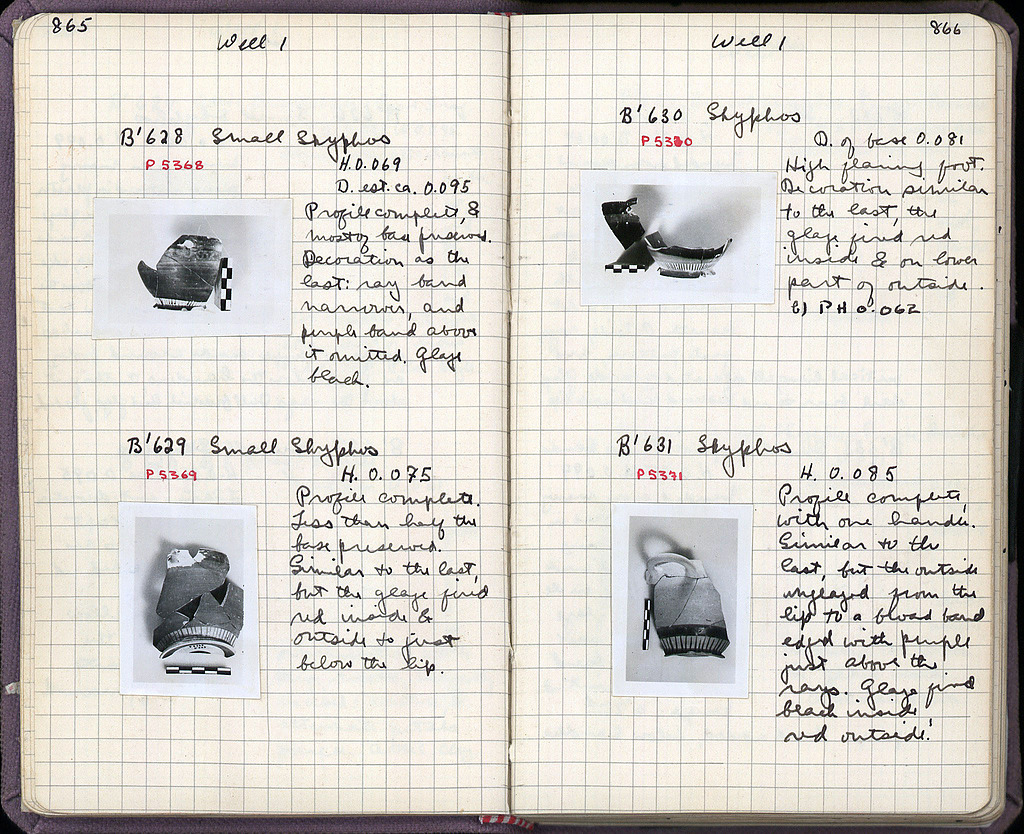 865
Well 1
B'628 Small Skyphos
P 5368
H. 0.069
D. est. ca. 0.095
Profile complete, &
most of base preserved.
Decoration as the
last: ray band
narrower, and
purple band above
it omitted. Glaze
black.
B'629 Small Skyphos
P 5369
H. 0.075
Profile complete.
Less than half the
base preserved.
Similar to the last,
but the glaze fired
red inside &
outside to just
below the lip.
866
Well 1
B'630 Skyphos
P 5370
D. of base 0.081
High flaring foot.
Decoration similar
to the last, the
glaze fired red
inside & on lower
part of outside.
b) PH 0.062
B'631 Skyphos
P 5371
H. 0.085
Profile complete,
with one handle.
Similar to the
last, but the outside
unglazed from the
lip to a broad band
edged with purple
just above the
rays. Glaze fired
black inside,
red outside.